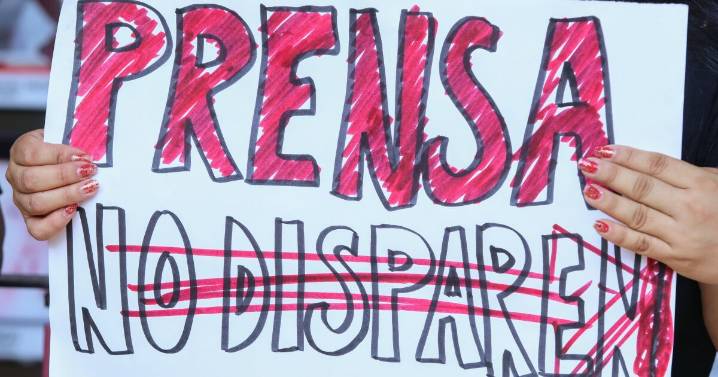 PRENSA
NO DISPAREN